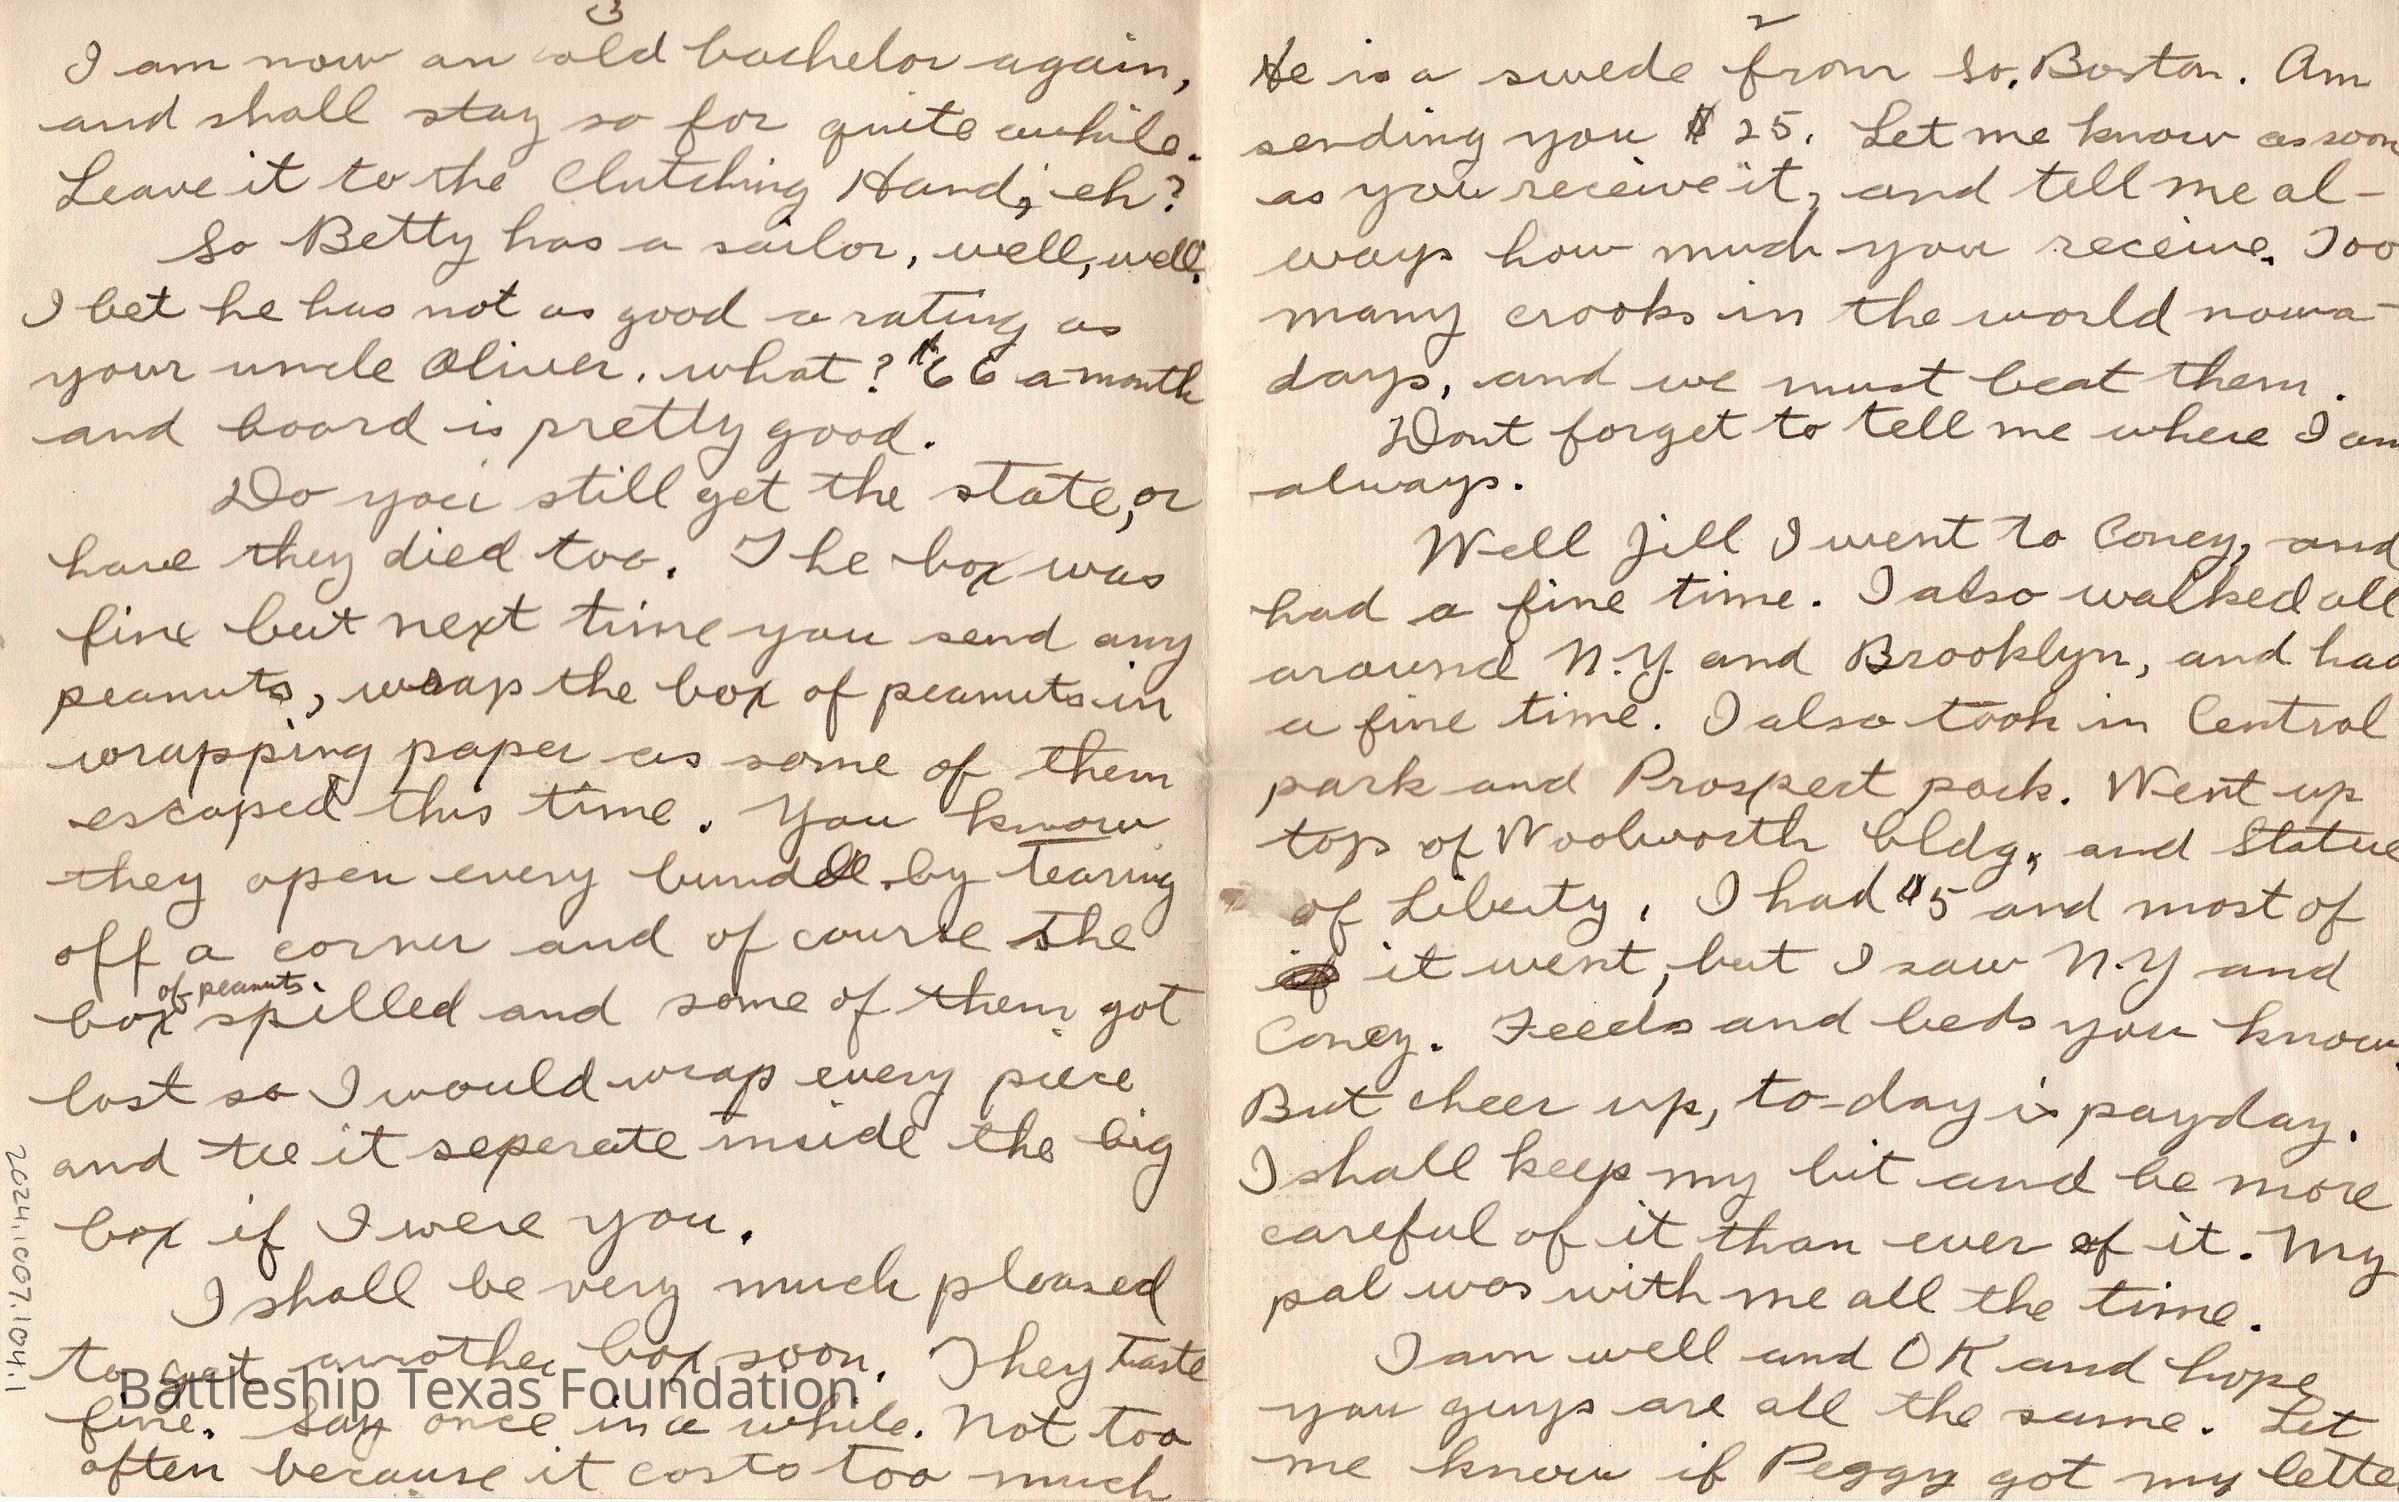 3
I am now an old bachelor again,
and shall stay so for quite awhile.
Leave it to the Clutching Hand, eh?
So Betty has a sailor, well, well.
I bet he has not as good a rating as
your uncle Oliver, what? $66 a month
and board is pretty good.
Do you still get the state, or
have they died too. The box was
fine but next time you send any
peanuts, wrap the box of peanuts in
wrapping paper as some of them
escaped this time. You know
they open every bundle by tearing
off a corner and of course the
of peanuts.
box spilled and some of them got
lost so I would wrap every piece
and tie it seperate inside the big
box if I were you.
I shall be very much pleased
to get another box soon. They taste
fine. Say once in a while. Not too
often because it costs too much
2024.007.104.1
Battleship Texas Foundation
2
He is a swede from So. Boston. Am
sending you $25. Let me know as soon
as you receive it, and tell me al-
ways how much you receive. Too
many crooks in the world nowa-
days, and we must beat them.
Dont forget to tell me where I am
always.
Well Jill I went to Coney, and
had a fine time. I also walked all
around N.Y. and Brooklyn, and had
a fine time. I also took in Central
park and Prospect park. Went up
top of Woolworth bldg, and Statue
of Liberty. I had $5 and most of
it went, but I saw N.Y and
Coney. Feeds and beds you know.
But cheer up, to-day is payday.
I shall keep my bit and be more
careful of it than ever of it. My
pal was with me all the time.
I am well and OK and hope
you guys are all the same. Let
me know if Peggy got my lette